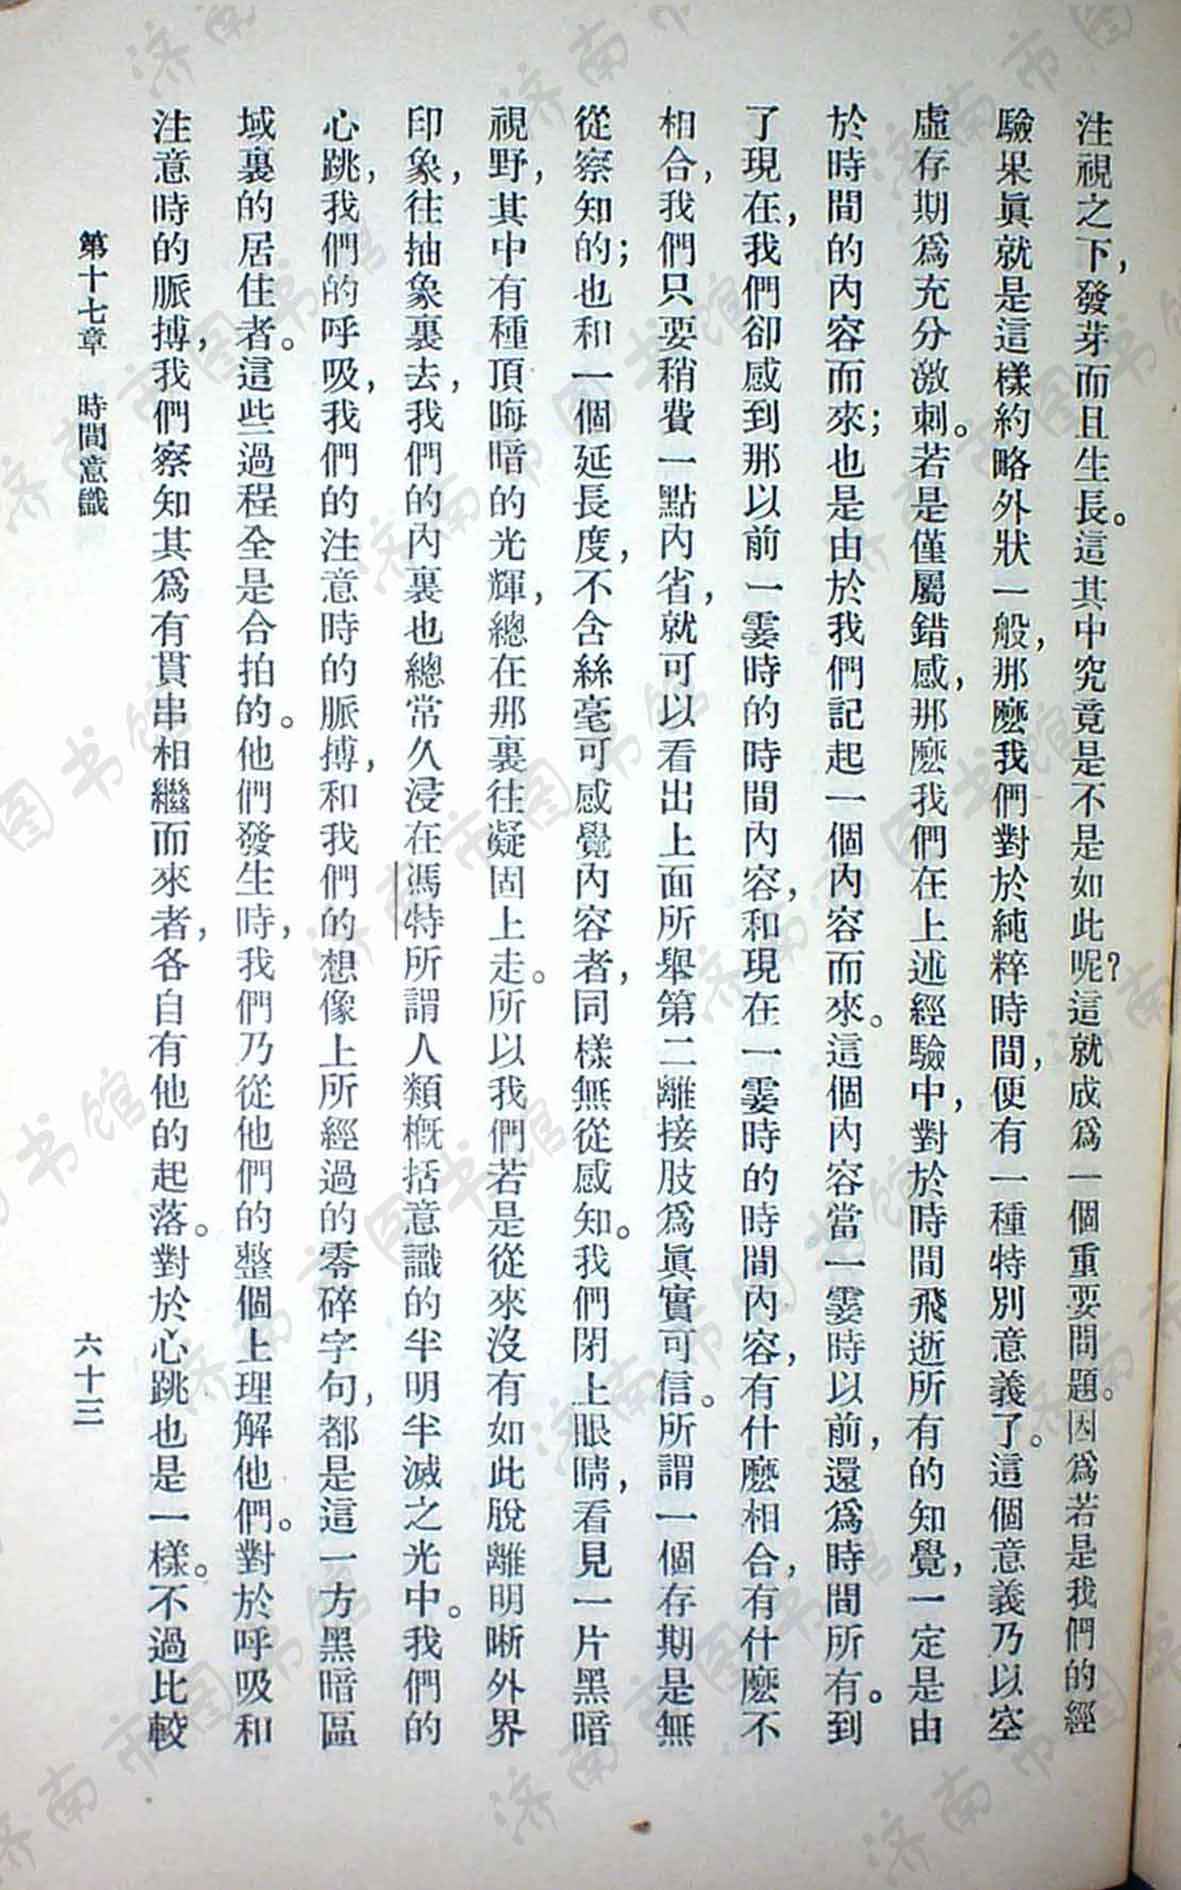 注視之下，發芽而且生長。這其中究竟是不是如此呢？這就成爲一個重要問題。因爲若是我們的經
驗果眞就是這樣約略外狀一般，那麼我們對於純粹時間，便有一種特別意義了。這個意義乃以空
虛存期爲充分激刺。若是僅屬錯感，那麼我們在上述經驗中，對於時間飛逝所有的知覺，一定是由
於時間的內容而來；也是由於我們記起一個內容而來。這個內容當一霎時以前，還爲時間所有。到
了現在，我們卻感到那以前一霎時的時間內容，和現在一霎時的時間內容，有什麼相合，有什麼不
相合，我們只要稍費一點內省，就可以看出上面所舉第二離接肢爲眞實可信。所謂一個存期是無
從察知的；也和一個延長度，不含絲毫可感覺內容者，同樣無從感知。我們閉上眼睛，看見一片黑暗
視野，其中有種頂晦暗的光輝，總在那裏往凝固上走。所以我們若是從來沒有如此脫離明晰外界
印象，往抽象裏去，我們的內裏也總常久浸在馮特所謂人類槪括意識的半明半滅之光中。我們的
心跳，我們的呼吸，我們的注意時的脈搏，和我們的想像上所經過的零碎字句，都是這一方黑暗區
域裏的居住者。這些過程全是合拍的。他們發生時，我們乃從他們的整個上理解他們。對於呼吸和
注意時的脈搏，我們察知其爲有貫串相繼而來者，各自有他的起落。對於心跳也是一樣。不過比較
第十七章 時間意識
六十三
济南市图书馆